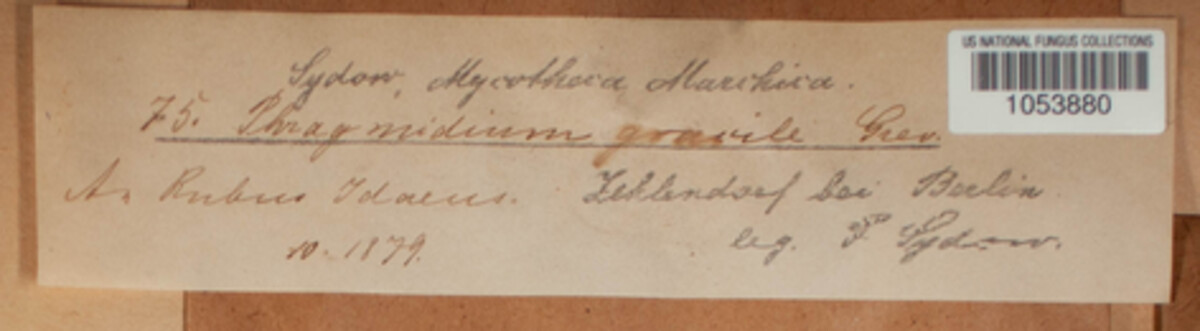 Sydow, Mycotheca Marchica.
75. Phragmidium gracile Grev.
An Rubus Idaeus. Zehlendorf bei Berlin
10. 1879. leg. P. Sydow.
US NATIONAL FUNGUS COLLECTIONS
1053880